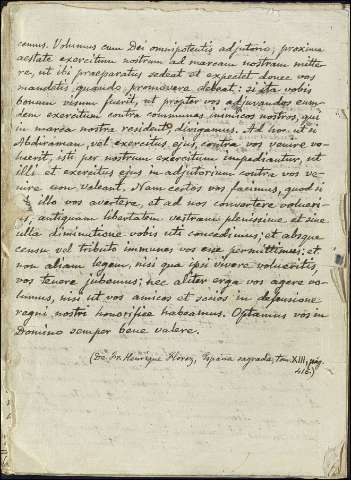 cemus. Volumus cum Dei omnipotentis adjutorio, proxima
aestate exercitum nostrum ad marcam nostram mitte-
re, ut ibi praeparatus sedeat et expectet donec vos
mandetis, quando promovere debeat: si ita vobis
bonum visum fuerit, ut propter vos adjuvandos eum-
dem exercitum contra communes inimicos nostros, qui
in marca nostra resident, dirigamus. Ad hoc ut si
Abdiraman, vel exercitus ejus, contra vos venire vo-
luerit, isti per nostrum exercitum impediantur, ut
illi et exercitus ejus in adjutorium contra vos ve-
nire non valeant. Nam certos vos facimus, quod si
ab illo vos avertere, et ad nos convertere volueri-
tis, antiquam libertatem vestram plenissime et sine
ulla diminutione vobis uti concedimus; et absque
censu vel tributo immunes vos esse permittimus; et
non aliam legem, nisi qua ipsi vivere volueritis,
vos tenere jubemus; nec aliter erga vos agere vo-
lumus, nisi ut vos amicos et socios in defensione
regni nostri honorifice habeamus. Optamus vos in
Domino semper bene valere.
(De Fr. Henrique Florez, España sagrada, tom. XIII, pág.
416.)